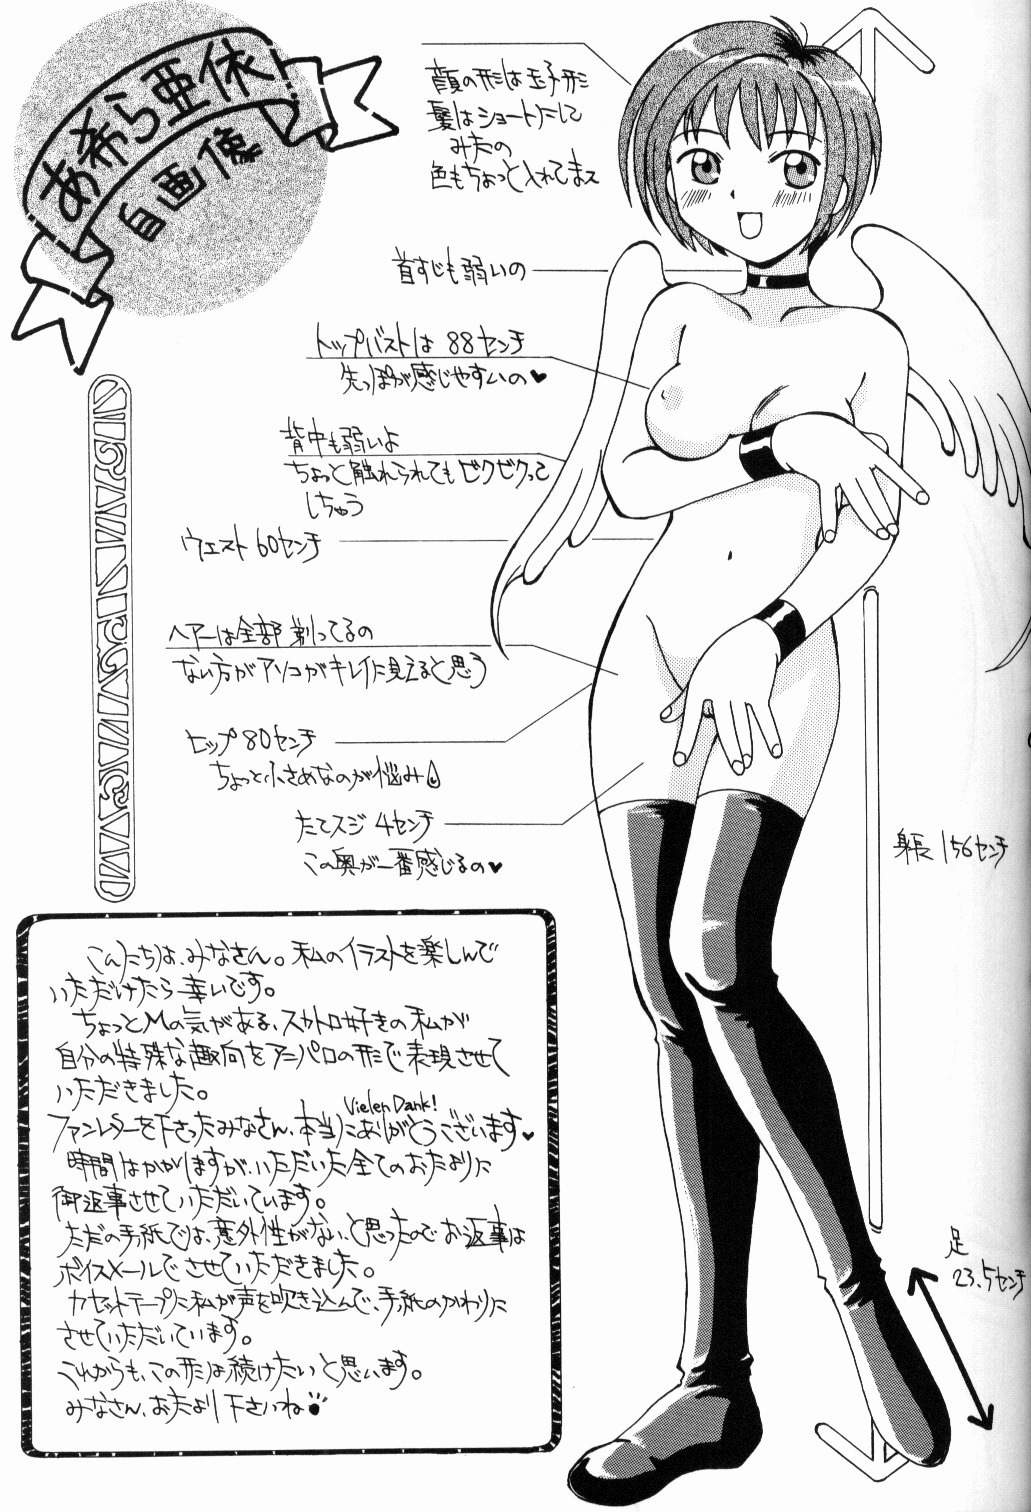 あ希ら亜依
自画像
顔の形は玉子形
髪はショートにして
みたの
色もちょっと入れてまス
首すじも弱いの
トップバストは 88センチ
先っぽが感じやすいの♥
背中も弱いよ
ちょっと触れられてもビクビクって
しちゃう
ウエスト 60センチ
ヘアーは全部剃ってるの
ない方がアソコがキレイに見えると思う
ヒップ 80センチ
ちょっと小さめなのが悩み
たてスジ 4センチ
この奥が一番感じるの♥
身長 156センチ
足
23.5センチ
こんにちは、みなさん。私のイラストを楽しんで
いただけたら幸いです。
ちょっとMの気がある、スカトロ好きの私が
自分の特殊な趣向をアニパロの形で表現させて
いただきました。
Vielen Dank!
ファンレターを下さったみなさん、本当にありがとうございます♥
時間はかかりますが、いただいた全てのおたよりに
御返事させていただいています。
ただの手紙では、意外性がない、と思ったのでお返事は
ボイスメールでさせていただきました。
カセットテープに私が声を吹き込んで、手紙のかわりに
させていただいています。
これからも、この形は続けたいと思います。
みなさん、おたより下さいね